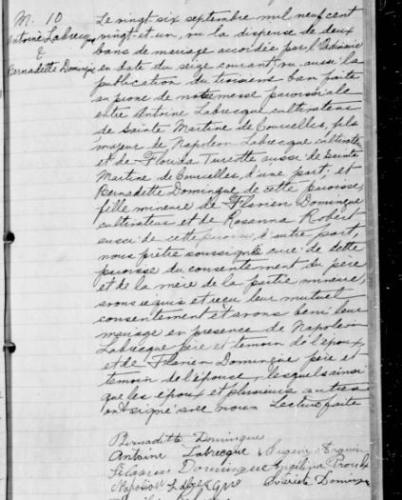 M. 10
Antoine Labrecque
&
Bernadette Domingue
Le vingt six septembre mil neuf cent
vingt-et un, vu la dispense de deux
bans de mariage accordée par l'Ordinaire
en date du seize courant, vu aussi la
publication du troisième ban faite
au prone de notre messe paroissiale
entre Antoine Labrecque cultivateur
de Sainte Martine de Courcelles, fils
majeur de Napoleon Labrecque cultivateur
et de Florida Turcotte aussi de Sainte
Martine de Courcelles, d'une part; et
Bernadette Domingue de cette paroisse,
fille mineure de Flavien Domingue
cultivateur et de Rosanna Robert
aussi de cette paroisse d'autre part,
nous prêtre soussigné curé de cette
paroisse du consentement du père
et de la mère de la partie mineure,
avons requis et reçu leur mutuel
consentement et avons beni leur
mariage en presence de Napoleon
Labrecque père et temoin de l'époux
et de Flavien Domingue père et
temoin de l'épouse, lesquels ainsi
que les époux et plusieurs autres
ont signé avec nous. Lecture faite
Bernadette Domingue
Antoine Labrecque
Flavien Domingue
Napoleon Labrecque